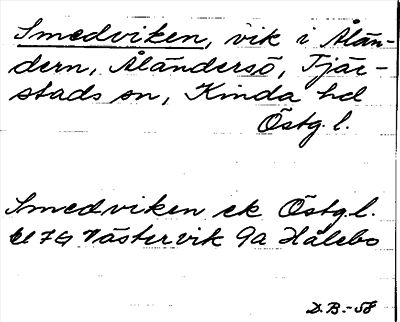 Smedviken, vik i Ålän-
dern, Åländersö, Tjär-
stads sn, Kinda hd
Östg. l.
Smedviken ek Östg. l.
7G Västervik 9a Hålebo
D.B.-58